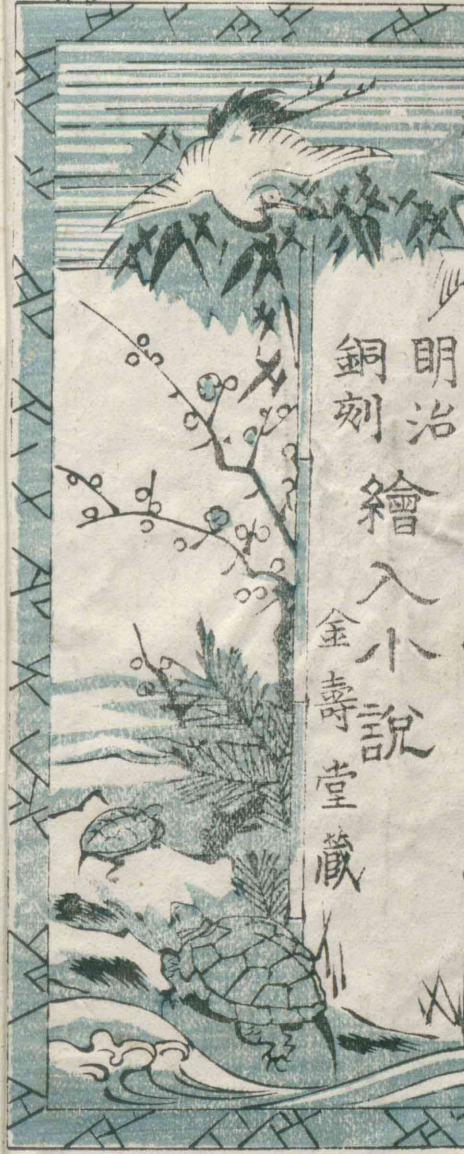 明治
銅刻
繪入小說
金壽堂藏